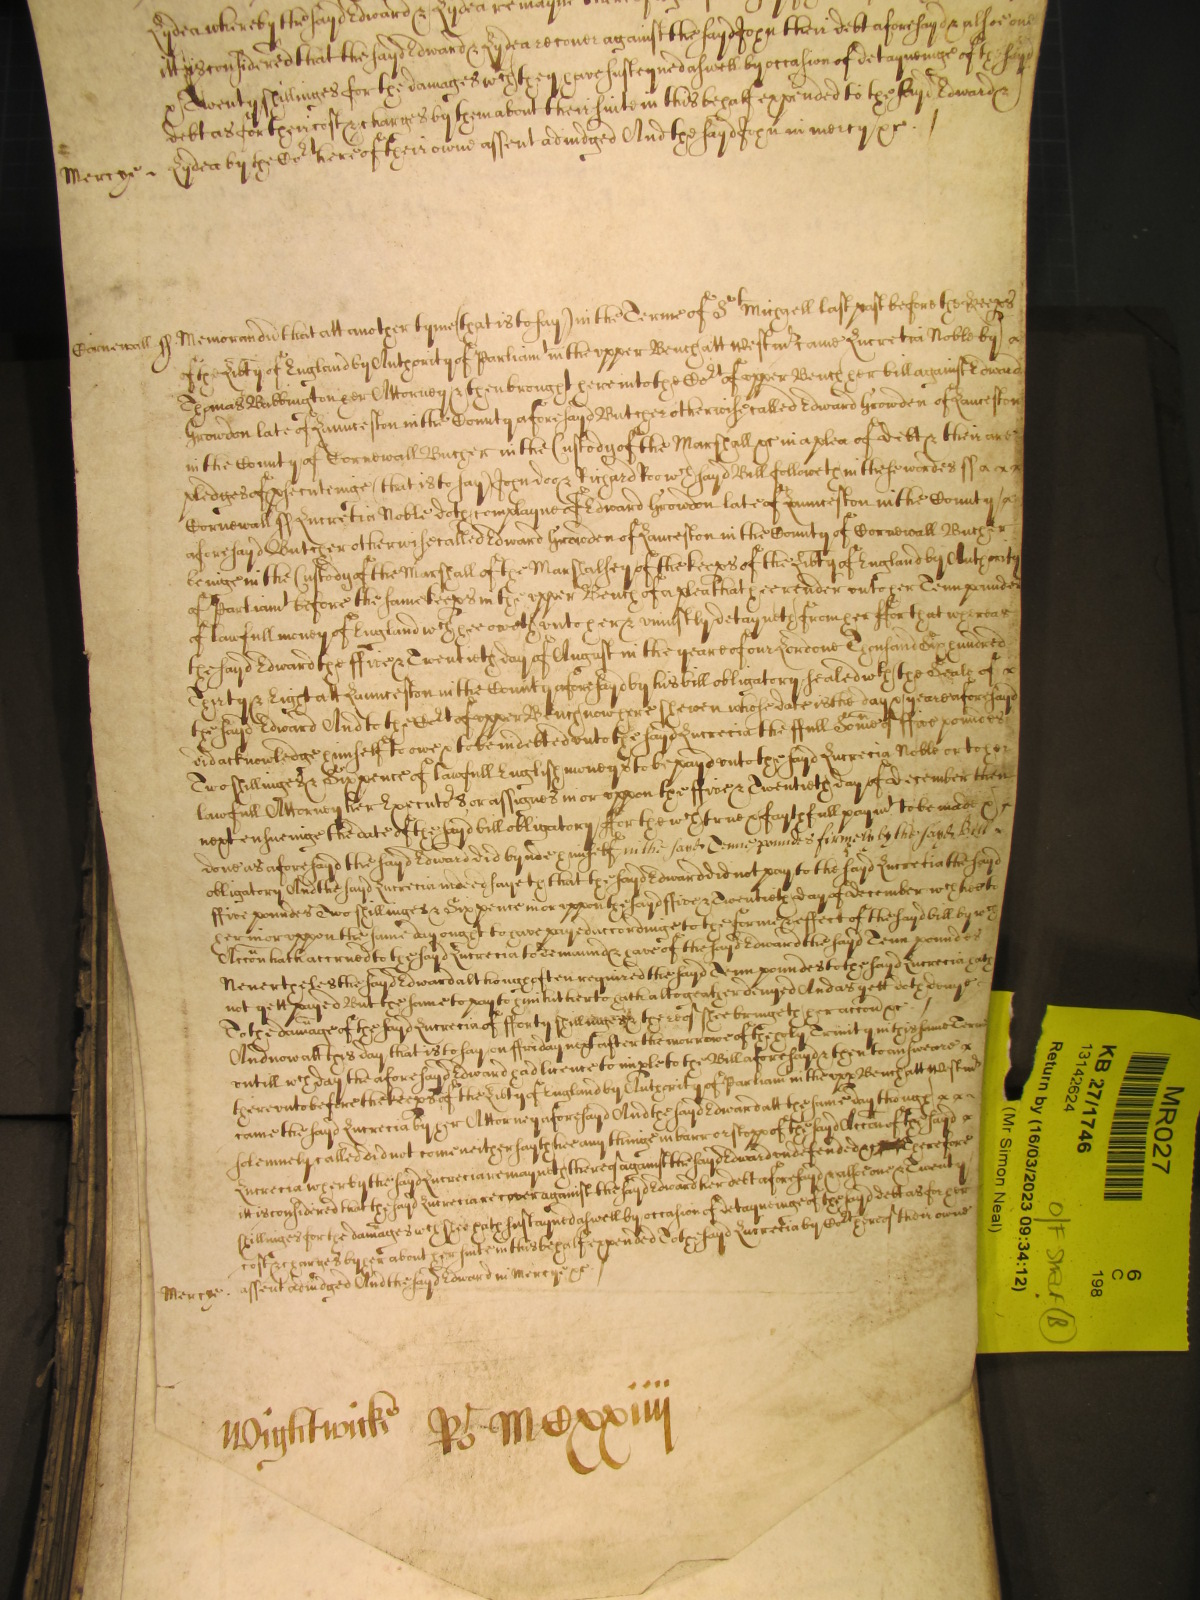 Lydea whereby the sayd Edward & Lydea remayne
itt is considered that the sayd Edward & Lydea recover against the sayd John their debt aforesayd & alsoe one
& Twenty shillinges for the damages wch they have susteyned aswell by occasion of deteyneinge of the sayd
debt as for their cost & charges by them about their suite in this behalf expended to the sayd Edward &
Mercye . Lydea by the Cort here of their owne assent adiudged And the sayd John in mercy &c . /
Cornewall ss Memorandũ that att another tyme (that is to say) in the Terme of St Michaell last past before the keeps
of the Libty of England by Authority of Parliamt in the upper Bench att Westmr came Lucretia Noble by
Thomas Babbington her Attorney & then brought here into the Cort of upper Bench her bill against Edward
Growdon late of Launceston in the County aforesayd Butcher otherwise called Edward Growden of Lanceston
in the County of Cornewall Butcher in the Custody of the Marshall &c in a plea of debt & their are
pledges of psecuteinge (that is to say) John doo & Richard Roo wch sayd Bill followeth in these wordes ss
Cornewall ss Lucretia Noble doth complayne of Edward Growdon late of Launceston in the County
aforesayd Butcher otherwise called Edward Growden of Lanceston in the County of Cornewall Butcher
beinge in the Custody of the Marshall of the Marshalsey of the keeps of the Libty of England by Authority
of Parliamt before the same keeps in the upper Bench of a plea that hee render unto her Tenn poundes
of lawfull money of England wch hee oweth unto her & uniustly deteyneth from her ffor that whereas
the sayd Edward the ffive & Twentieth day of August in the yeare of our Lord one Thousand Six hundred
Thirty & Eight att Launceston in the County aforesayd by his bill obligatory sealed with the Seale of
the sayd Edward And to the Cort of upper Bench now here shewen whose date is the day & yeare aforesayd
did acknowledge himself to owe & to be indebted unto the sayd Lucrecia the ffull Some of ffive poundes
Two shillinges & Six pence of lawfull English money to be payd unto the sayd Lucrecia Noble or to her
lawfull Attorney her Executors, or assignes in or uppon the ffive & Twentieth day of December then
next ensueinge the date of the sayd bill obligatory ffor the wch true & faythfull paymt to be made &
done as aforesayd the sayd Edward did bynde himself in the sayd Tenne poundes firmely by the sayd Bill
obligatory And the sayd Lucrecia in deed sayeth that the sayd Edward did not pay to the sayd Lucrecia the sayd
ffive poundes Two shillinges & Six pence in or uppon the sayd ffive & Twentieth day of December wch hee to
her in or uppon the same day ought to have payed accordinge to the forme & effect of the sayd bill by wch
Accon hath accrued to the sayd Lucrecia to demaund & have of the sayd Edward the sayd Tenn poundes
Neverthelesse the sayd Edward although often required the sayd Tenn poundes to the sayd Lucrecia hath
not yett payed But the same to pay to him hitherto hath altogeather denyed And as yett doth denye
To the damage of the sayd Lucrecia of fforty shillinges & thereof shee bringeth her accon &c . /
And now att this day that is to say, on ffriday next after the morrowe of the holy Trinity in this same Terme
untill wch day the aforesayd Edward had licence to imple to the Bill aforesayd & then to answeare
thereunto before the keeps of the Libty of England by Authority of Parliam in the upp Bench att Westmr
came the sayd Lucrecia by her Attorney aforesayd And the sayd Edward att the same day though
solemnely called did not come neither sayth hee any thinge in barr or stopp of the sayd Accon of the sayd
Lucrecia wherby the sayd Lucrecia remayneth thereof against the sayd Edward undefended Therefore
itt is considered that the sayd Lucrecia recover against the sayd Edward her debt aforesayd & allsoe one & Twenty
shillinges for the damages wch shee hath susteyned aswell by occasion of deteyneinge of the sayd debt as for her
cost & charges by her about her suite in this behalf expended To the sayd Lucrecia by Cort here of their owne
Mercye . assent adiudged And the sayd Edward in Mercye &c . /
Wightwicke Ro MCxxiiii
MR027
KB 27/1746
13142624
Return by (16/03/2023 09:34:12)
(Mr Simon Neal)
6
C
198
O/F Straf (B)